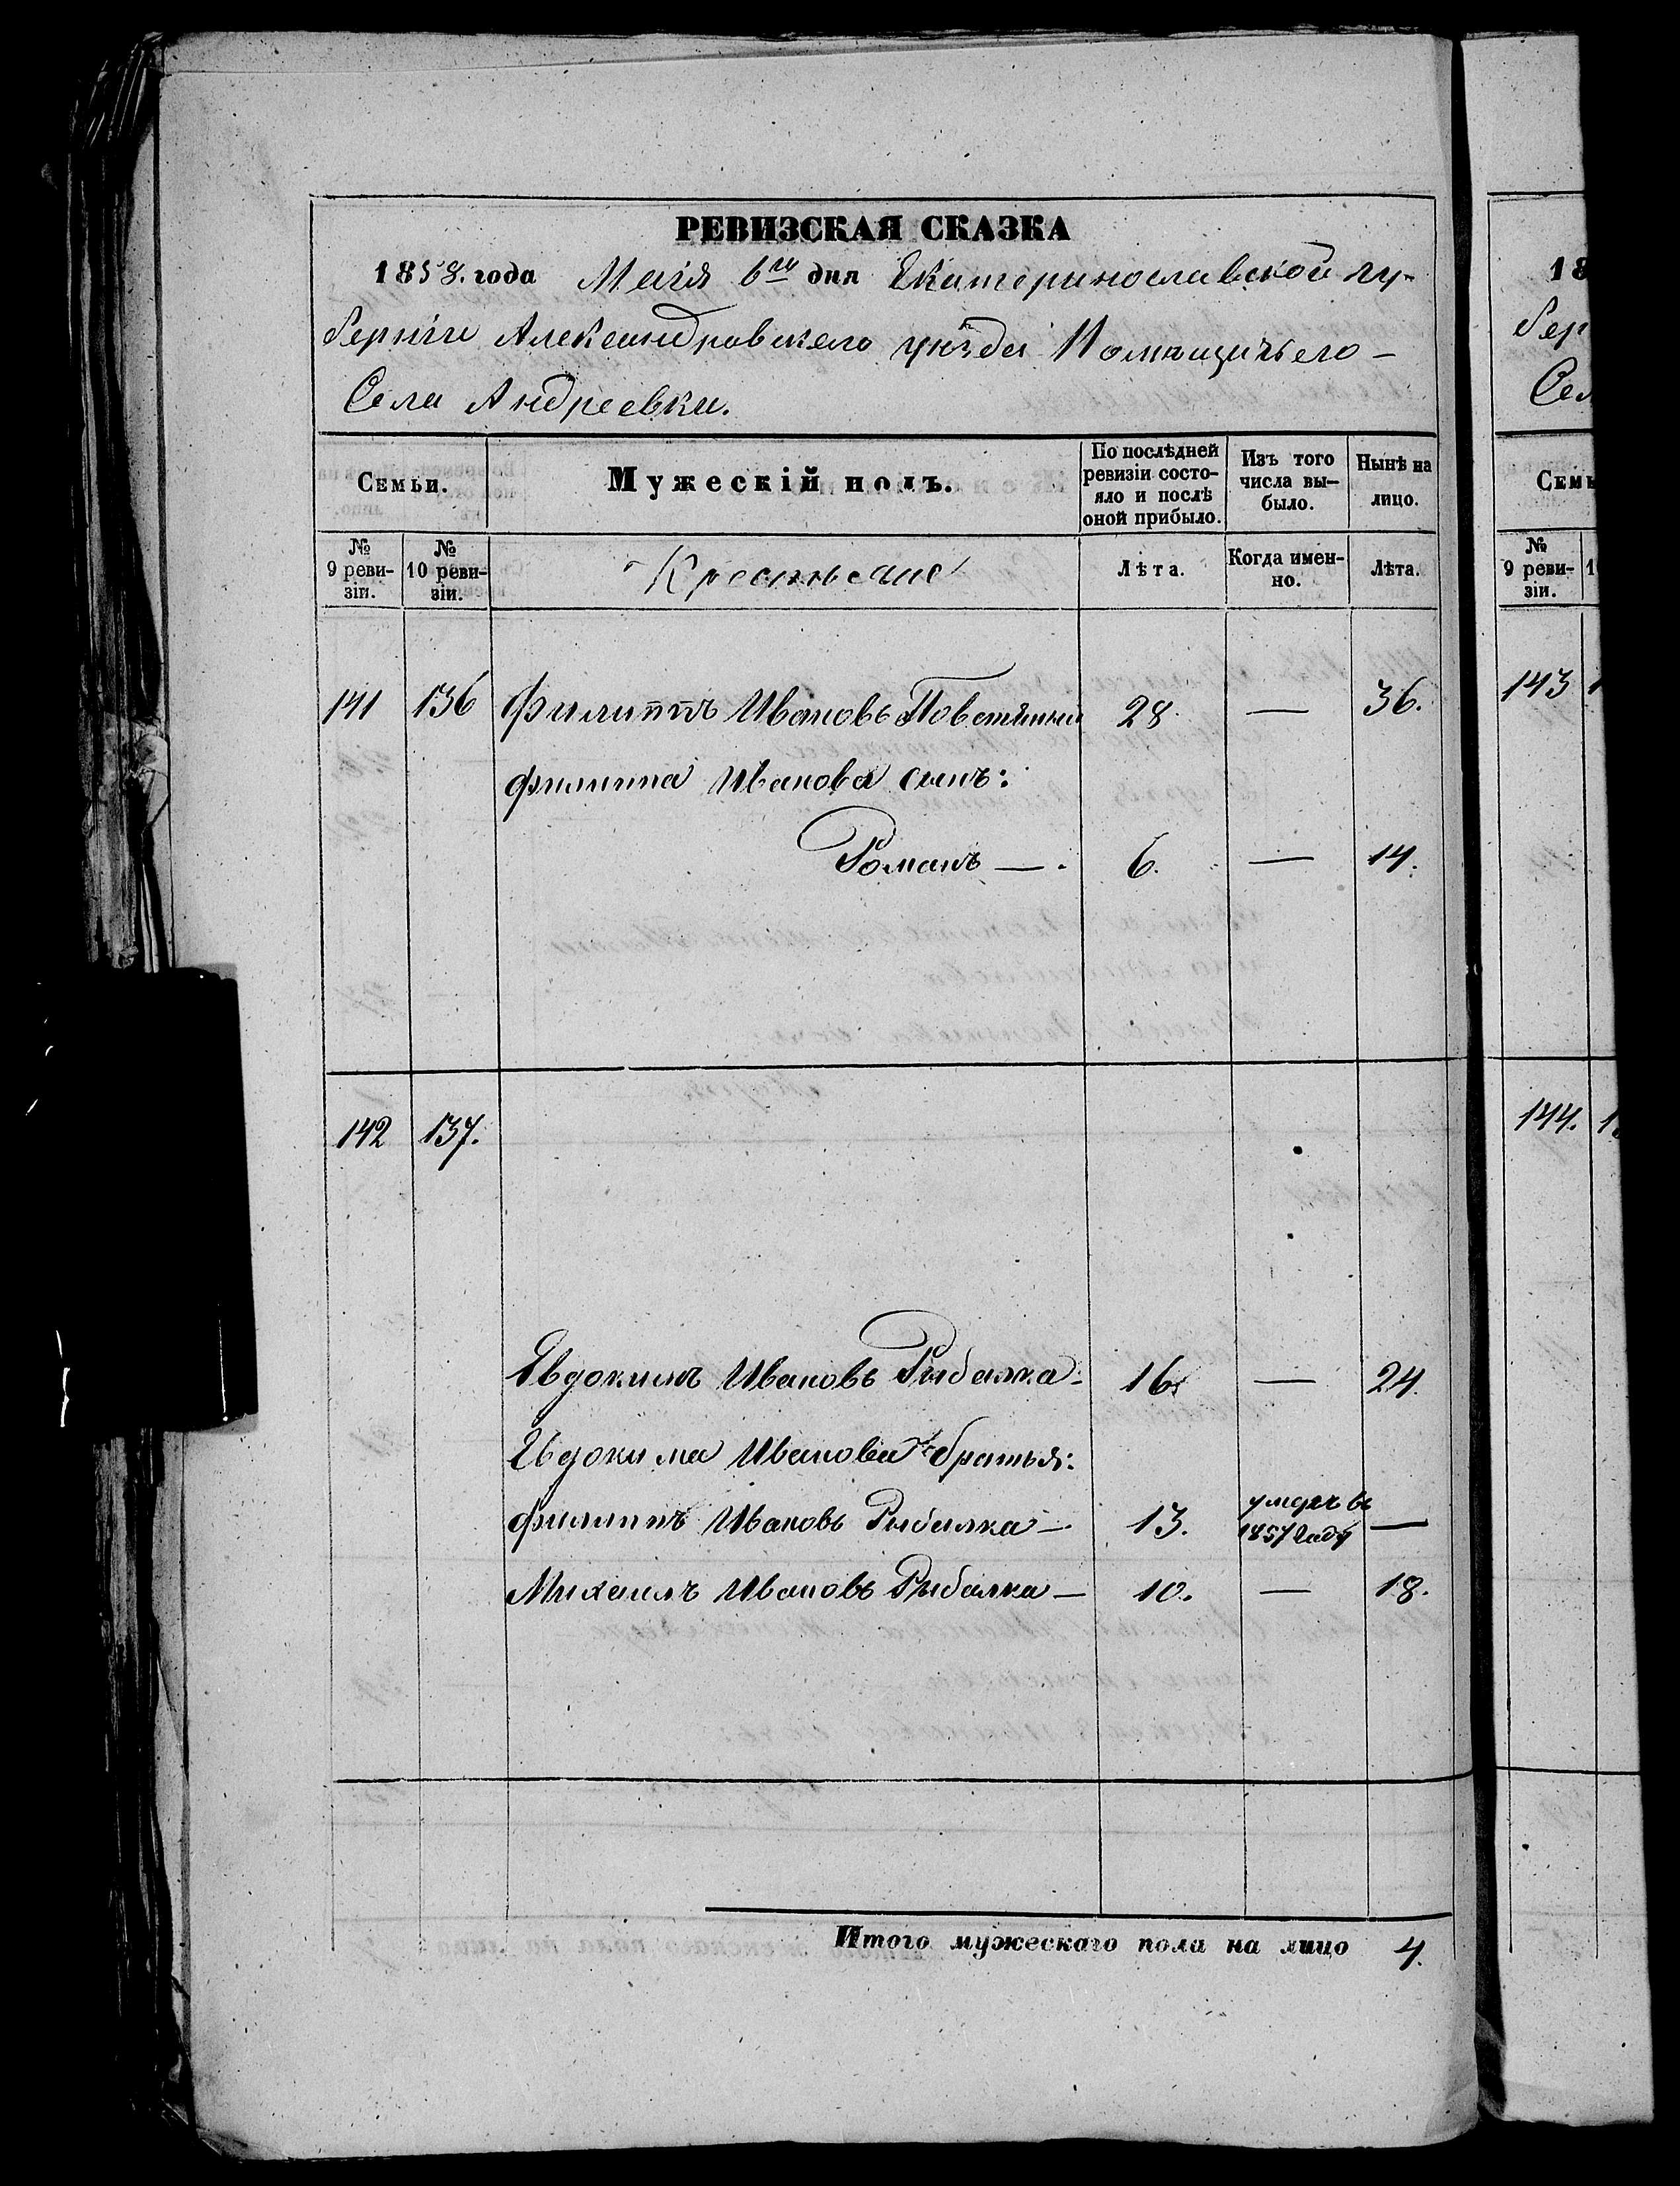 РЕВИЗСКАЯ СКАЗКА
1858. года Маія 6го дня Екатеринославской гу-
берніи Александровскаго уѣзда Помѣщичьего
Села Андреевки.
Семьи.
Мужескій полъ.
По послѣдней ревизіи состо-
яло и послѣ оной прибыло.
Изъ того числа вы-
было.
Нынѣ на лицо.
№ 9 реви-
зіи.
№ 10 реви-
зіи.
Крестьяне
Лѣта.
Когда имен-
но.
Лѣта.
141 136 Филиппъ Ивановъ 28 — 36.
Филиппа Иванова сынъ:
Романъ — 6. — 14.
142 137.
Евдокимъ Ивановъ Рыбалка 16 — 24.
Евдокима Иванова братья:
Филиппъ Ивановъ Рыбалка — 13. умеръ въ 1857 году —
Михаилъ Ивановъ Рыбалка — 10. — 18.
Итого мужескаго пола на лицо 4.
18
бер
Сел
Семь
№ 9 реви-
зіи.
143
144.